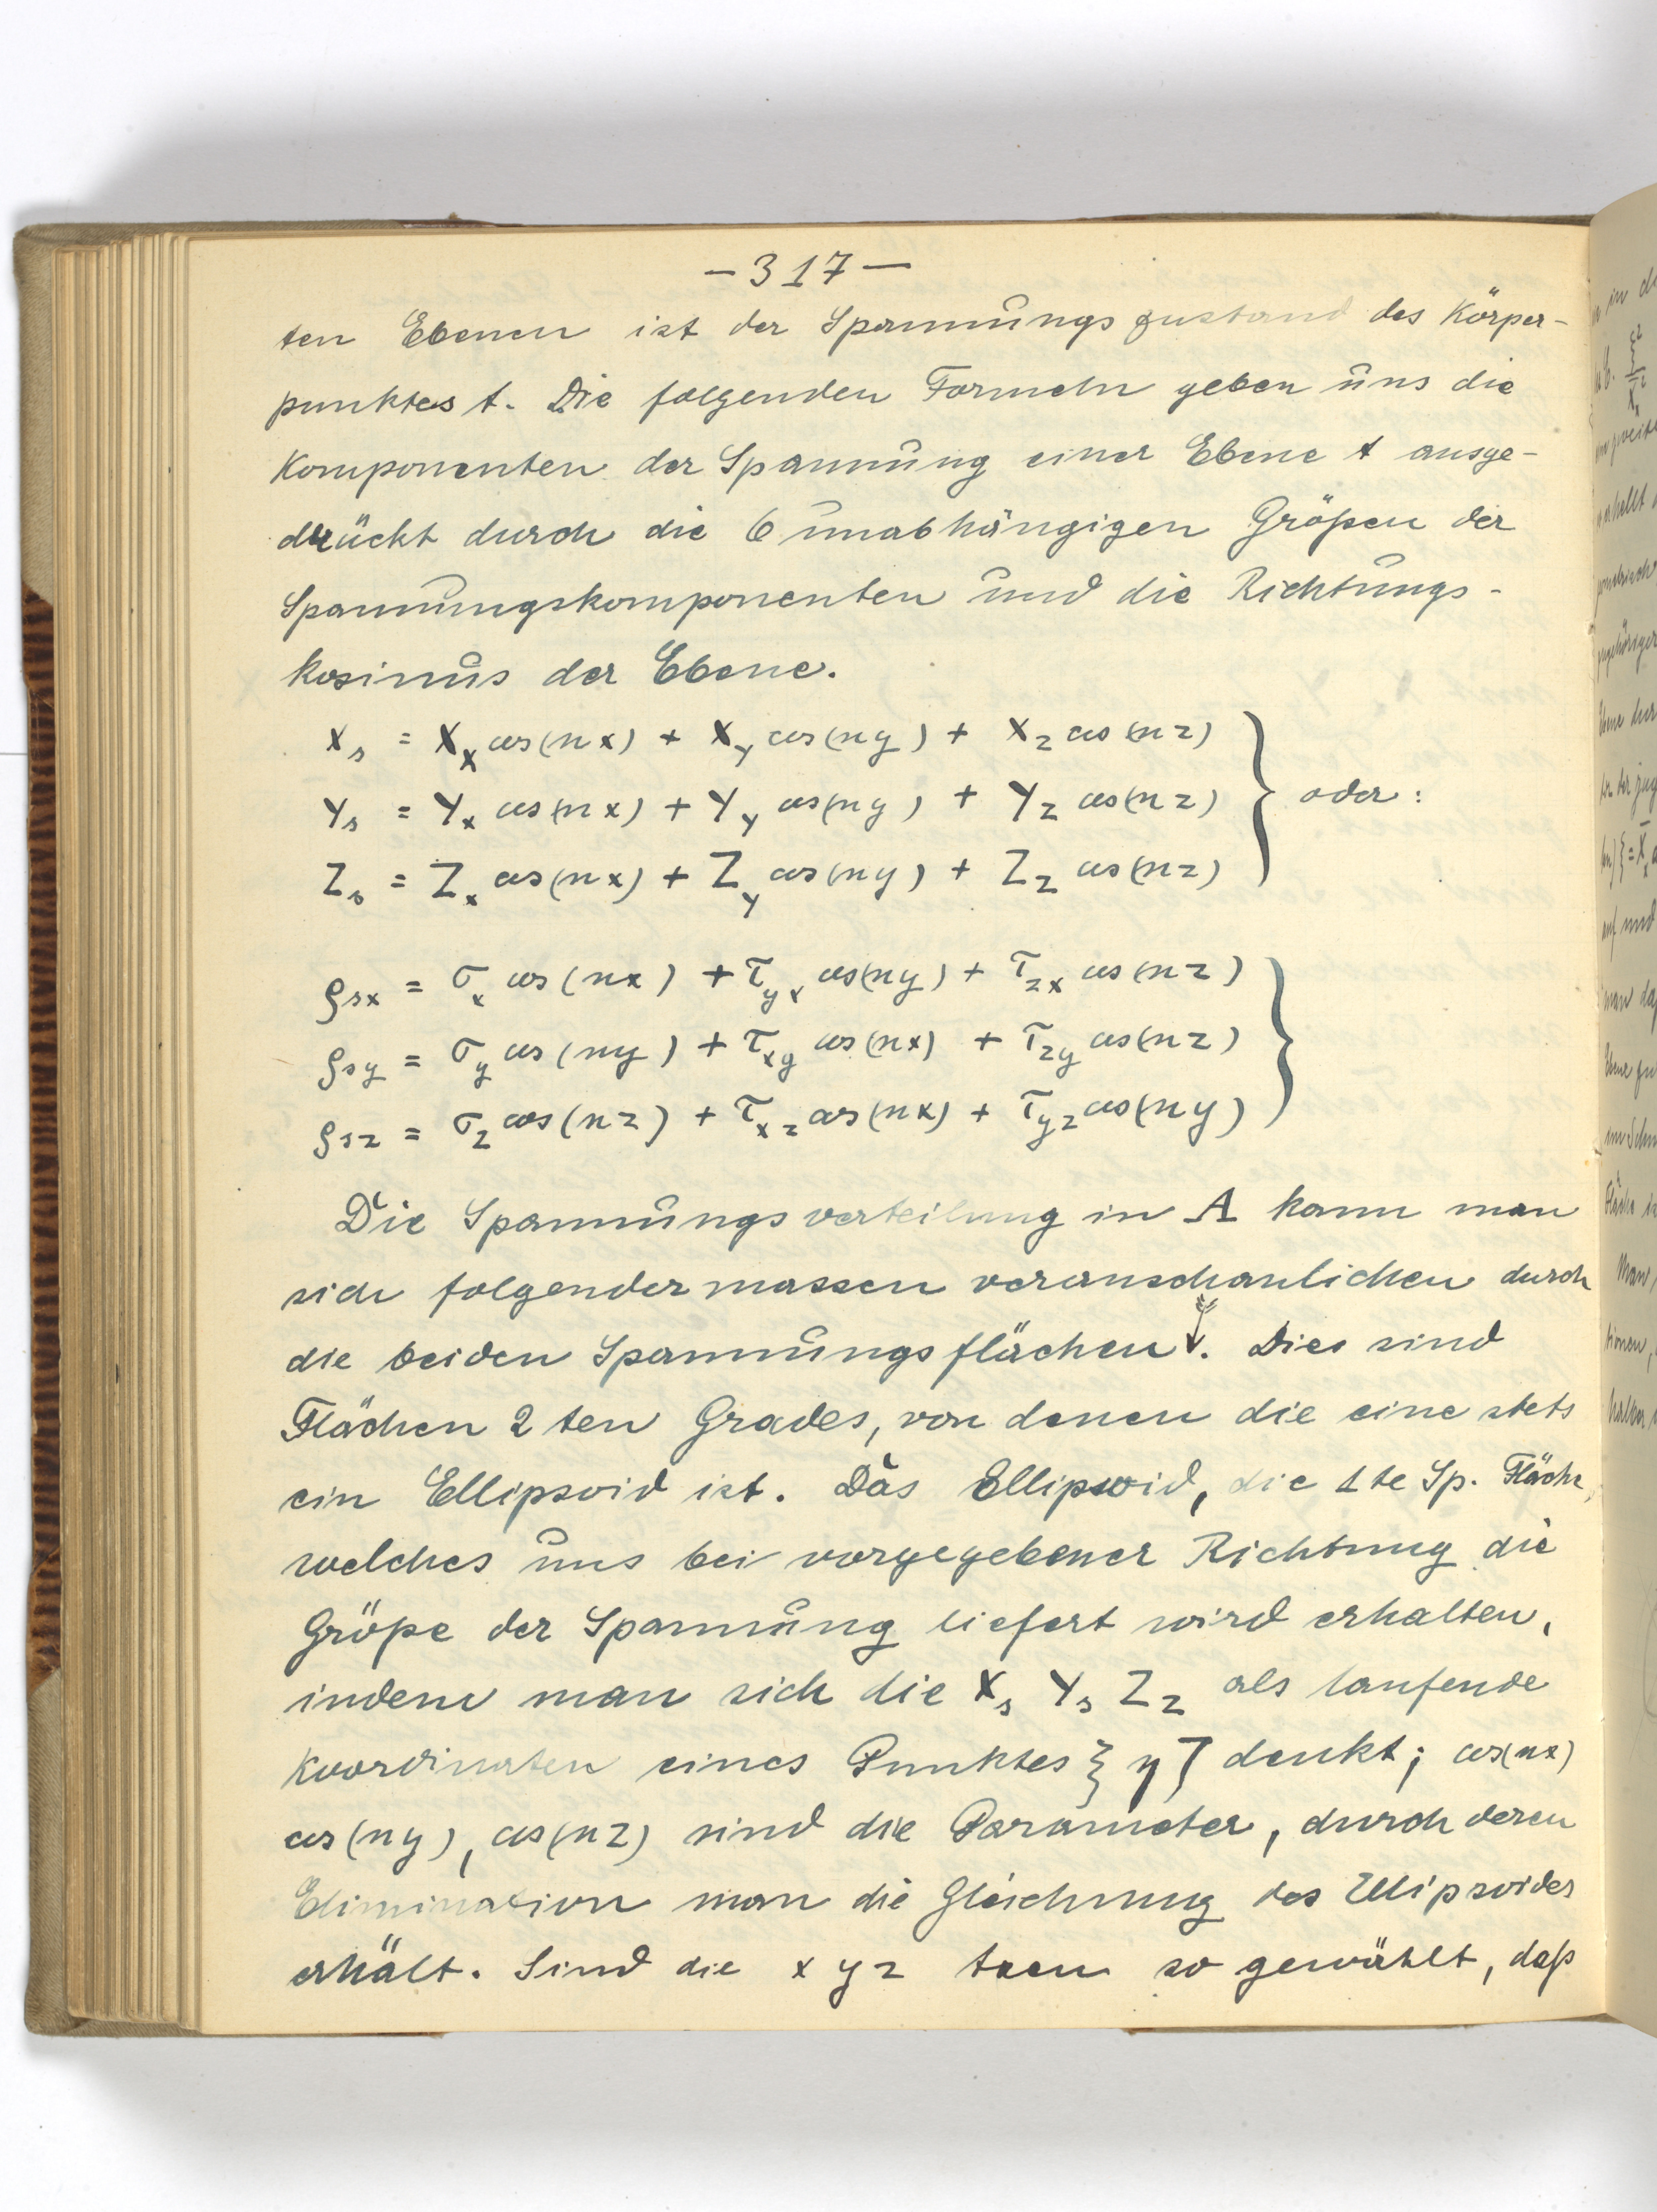 — 317 —
ten Ebenen ist der Spannungszustand des Körper-
punktes t. Die folgenden Formeln geben uns die
Komponenten der Spannung einer Ebene t ausge-
drückt durch die 6 unabhängigen Größen der
Spannungskomponenten und die Richtungs-
kosinus der Ebene.
X_s = X_x cos(nx) + X_y cos(ny) + X_z cos(nz)
Y_s = Y_x cos(nx) + Y_y cos(ny) + Y_z cos(nz) } oder:
Z_s = Z_x cos(nx) + Z_y cos(ny) + Z_z cos(nz)
ρ_sx = σ_x cos(nx) + τ_yx cos(ny) + τ_zx cos(nz)
ρ_sy = σ_y cos(ny) + τ_xy cos(nx) + τ_zy cos(nz) }
ρ_sz = σ_z cos(nz) + τ_xz cos(nx) + τ_yz cos(ny)
Die Spannungsverteilung in A kann man
sich folgendermassen veranschaulichen durch
die beiden Spannungsflächen. Dies sind
Flächen 2ten Grades, von denen die eine stets
ein Ellipsoid ist. Das Ellipsoid, die 1te Sp. Fläche,
welches uns bei vorgegebener Richtung die
Größe der Spannung liefert wird erhalten,
indem man sich die X_s Y_s Z_z als laufende
Koordinaten eines Punktes ξ η ζ denkt; cos(nx)
cos(ny), cos(nz) sind die Parameter, durch deren
Elimination man die Gleichung des Ellipsoides
erhält. Sind die x y z so gewählt, daß